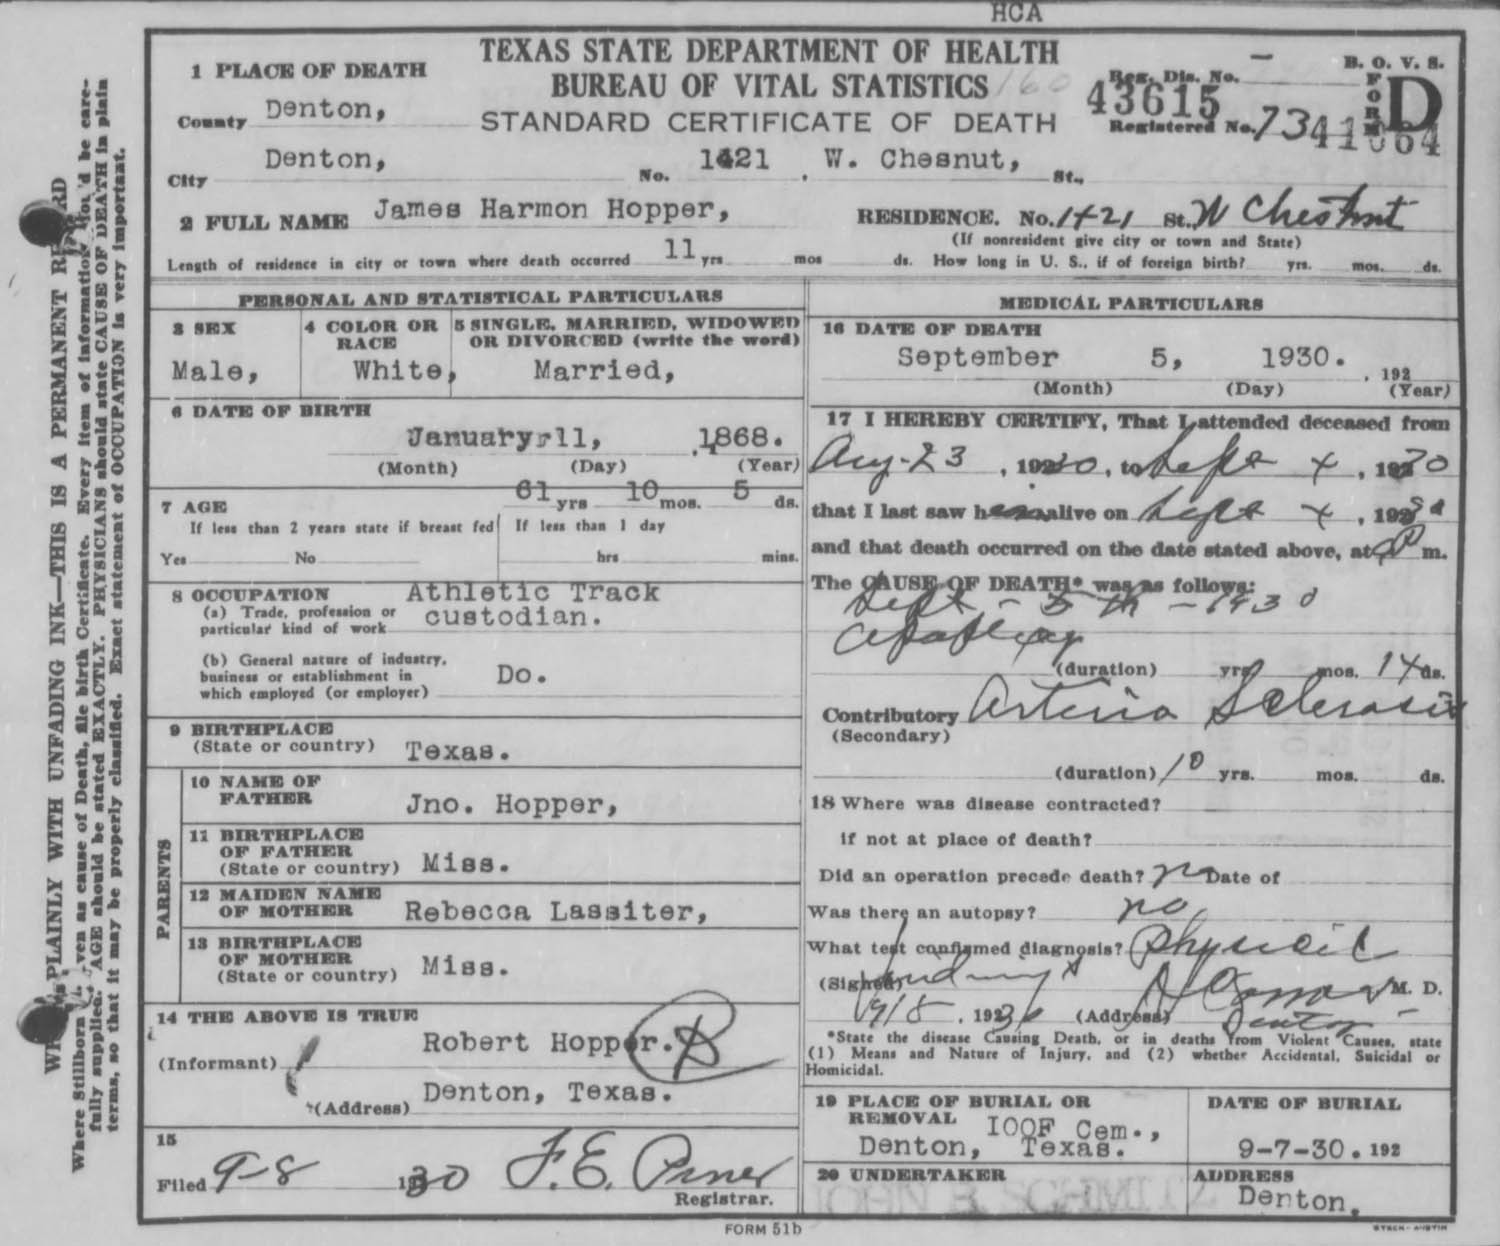 HCA
TEXAS STATE DEPARTMENT OF HEALTH
BUREAU OF VITAL STATISTICS 160
STANDARD CERTIFICATE OF DEATH
B. O. V. S.
FORM D
Reg. Dis. No. —
43615
Registered No. 73 41064
1 PLACE OF DEATH
County Denton,
City Denton, No. 1421 W. Chesnut, St.,
2 FULL NAME James Harmon Hopper, RESIDENCE. No. 1421 St., W Chestnut
(If nonresident give city or town and State)
Length of residence in city or town where death occurred 11 yrs mos ds. How long in U. S., if of foreign birth? yrs. mos. ds.
PERSONAL AND STATISTICAL PARTICULARS
3 SEX
Male,
4 COLOR OR RACE
White,
5 SINGLE, MARRIED, WIDOWED
OR DIVORCED (write the word)
Married,
6 DATE OF BIRTH
January 11, 1868.
(Month) (Day) (Year)
7 AGE 61 yrs 10 mos. 5 ds.
If less than 2 years state if breast fed
Yes No
If less than 1 day
hrs mins.
8 OCCUPATION Athletic Track
(a) Trade, profession or
particular kind of work custodian.
(b) General nature of industry,
business or establishment in
which employed (or employer) Do.
9 BIRTHPLACE
(State or country) Texas.
PARENTS
10 NAME OF
FATHER Jno. Hopper,
11 BIRTHPLACE
OF FATHER
(State or country) Miss.
12 MAIDEN NAME
OF MOTHER Rebecca Lassiter,
13 BIRTHPLACE
OF MOTHER
(State or country) Miss.
14 THE ABOVE IS TRUE
(Informant) Robert Hopper.
(Address) Denton, Texas.
15
Filed 9-8 1930 F. E. Piner
Registrar.
MEDICAL PARTICULARS
16 DATE OF DEATH
September 5, 1930. , 192
(Month) (Day) (Year)
17 I HEREBY CERTIFY, That I attended deceased from
Aug-23, 1930, to Sept 4, 1930
that I last saw h alive on Sept 4, 1930
and that death occurred on the date stated above, at m.
The CAUSE OF DEATH* was as follows:
Sept - 5th - 1930
Apoplexy
(duration) yrs mos. 14 ds.
Contributory Arterio Sclerosis
(Secondary)
(duration) 10 yrs. mos. ds.
18 Where was disease contracted?
if not at place of death?
Did an operation precede death? no Date of
Was there an autopsy? no
What test confirmed diagnosis? Physical
(Signed) M. D.
9/8, 1930 (Address) Denton
*State the disease Causing Death, or in deaths from Violent Causes, state
(1) Means and Nature of Injury, and (2) whether Accidental, Suicidal or
Homicidal.
19 PLACE OF BURIAL OR
REMOVAL IOOF Cem.,
Denton, Texas.
DATE OF BURIAL
9-7-30. 192
20 UNDERTAKER
JOHN B. SCHMITZ
ADDRESS
Denton,
FORM 51b
STECK-AUSTIN
PLAINLY WITH UNFADING INK—THIS IS A PERMANENT RECORD
Where Stillborn given as cause of Death, file birth Certificate. Every item of information should be care-
fully supplied. AGE should be stated EXACTLY. PHYSICIANS should state CAUSE OF DEATH in plain
terms, so that it may be properly classified. Exact statement of OCCUPATION is very important.